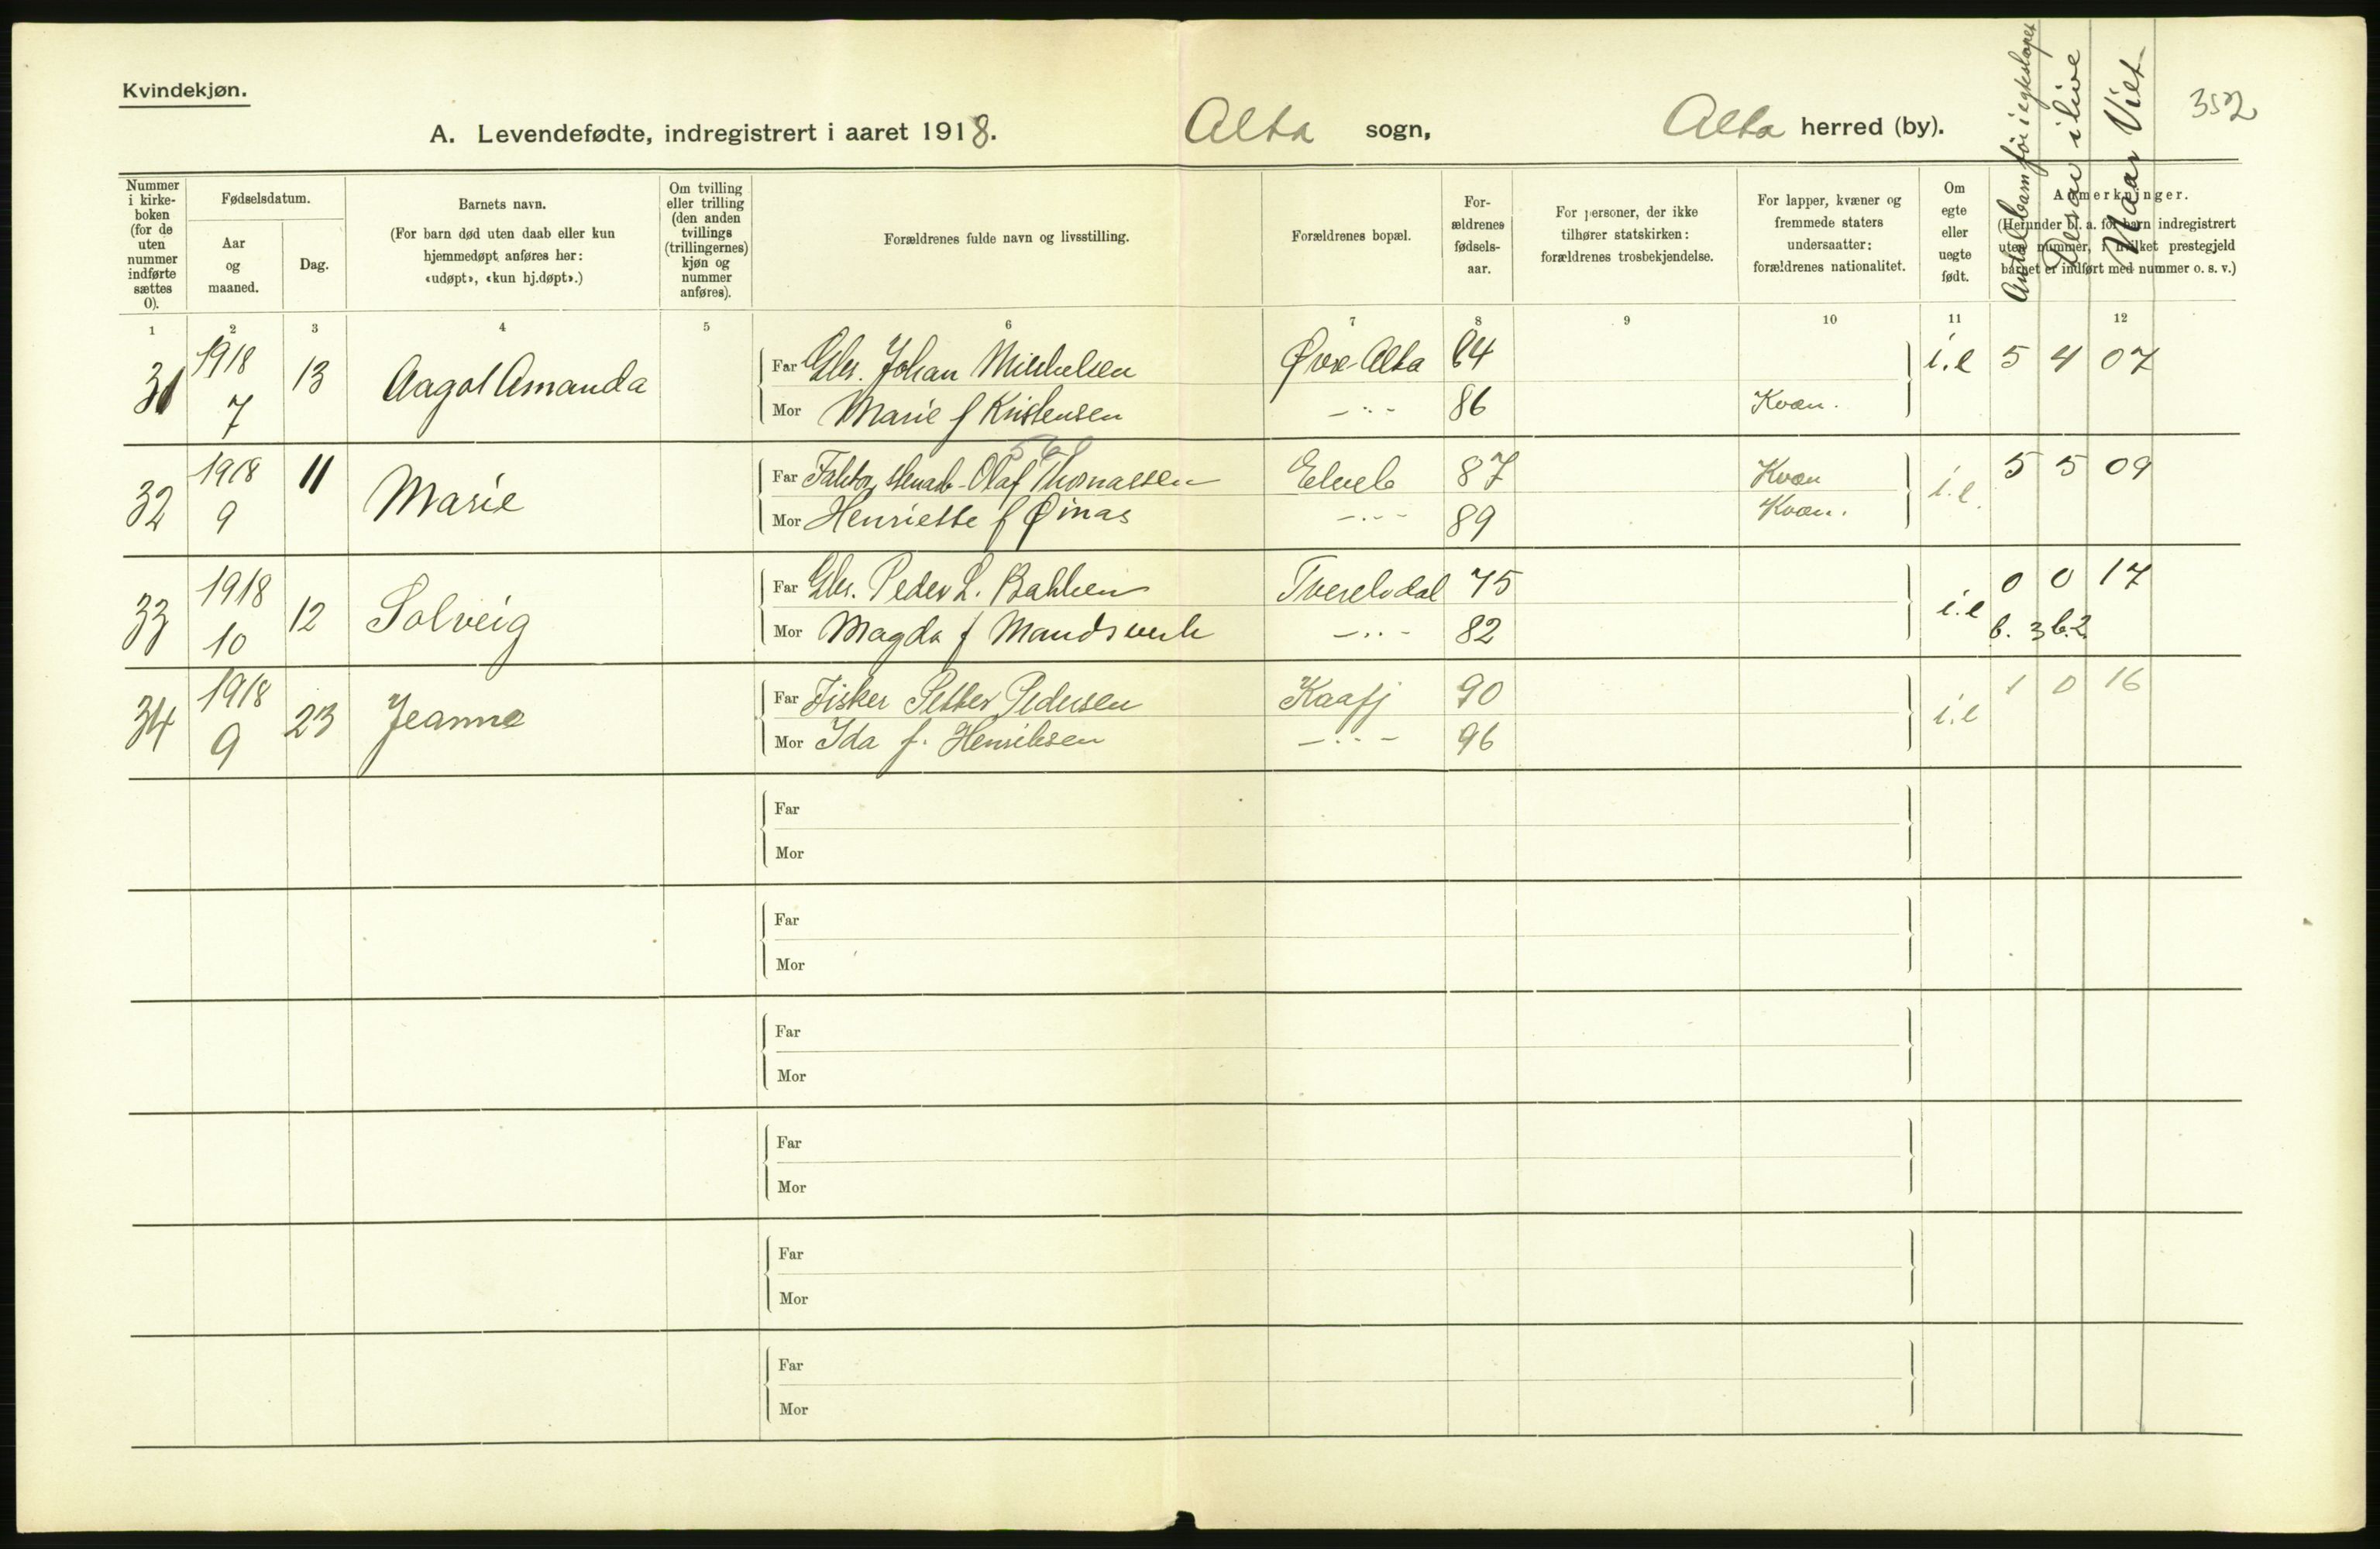 Kvindekjøn.
A. Levendefødte, indregistrert i aaret 1918. Alta sogn, Alta herred (by).
352
Nummer i kirkeboken (for de uten nummer indførte sættes 0).
Fødselsdatum.
Aar og maaned.
Dag.
Barnets navn.
(For barn død uten daab eller kun hjemmedøpt anføres her: «udøpt», «kun hj.døpt».)
Om tvilling eller trilling (den anden tvillings (trillingernes) kjøn og nummer anføres).
Forældrenes fulde navn og livsstilling.
Forældrenes bopæl.
Forældrenes fødselsaar.
For personer, der ikke tilhører statskirken: forældrenes trosbekjendelse.
For lapper, kvæner og fremmede staters undersaatter: forældrenes nationalitet.
Om egte eller uegte født.
Anmerkninger.
(Herunder bl. a. for barn indregistrert uten nummer, i hvilket prestegjeld barnet er indført med nummer o. s. v.)
Antal barn før i egteskapet
Desav ilive
Naar Viet
1 2 3 4 5 6 7 8 9 10 11 12
31 1918 7 13 Aagot Amanda Far Gbr. Johan Mikkelsen Øvre Alta 64 i.e 5 4 07
Mor Marie f Kristensen —..— 86 Kvæn.
32 1918 9 11 Marie Far Olaf Thomassen Elveb 87 Kvæn i.e. 5 5 09
Mor Henriette f Øinas —..— 89 Kvæn.
33 1918 10 12 Solveig Far Gbr. Peder L. Bakken Tverelvdal 75 i.e 0 0 17
Mor Magda f Mandsverk —..— 82 b. 3 b.2.
34 1918 9 23 Jeanna Far Fisker Petter Pedersen Kaafj 90 i.e 1 0 16
Mor Ida f. Henriksen —..— 96
Far
Mor
Far
Mor
Far
Mor
Far
Mor
Far
Mor
Far
Mor